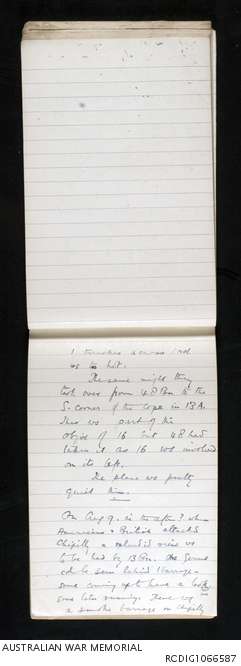 trenches across
was too hot.
The same night they
took over from 48 Bn to the
S. corner of the copse in 13A.
This ws part of the
objve of 16 but 48 had
taken it as 16 ws involved
on its left.
The place ws pretty
quiet then.
On Aug 9, in the aftn, when
Americans & British attacked
Chipilly a splendid view ws
to be had by 13 Bn. The Germans
cd be seen behind barrage -
some coming up to have a look,
some later running. There ws
a smoke barrage on Chipilly
AUSTRALIAN WAR MEMORIAL
RCDIG1066587